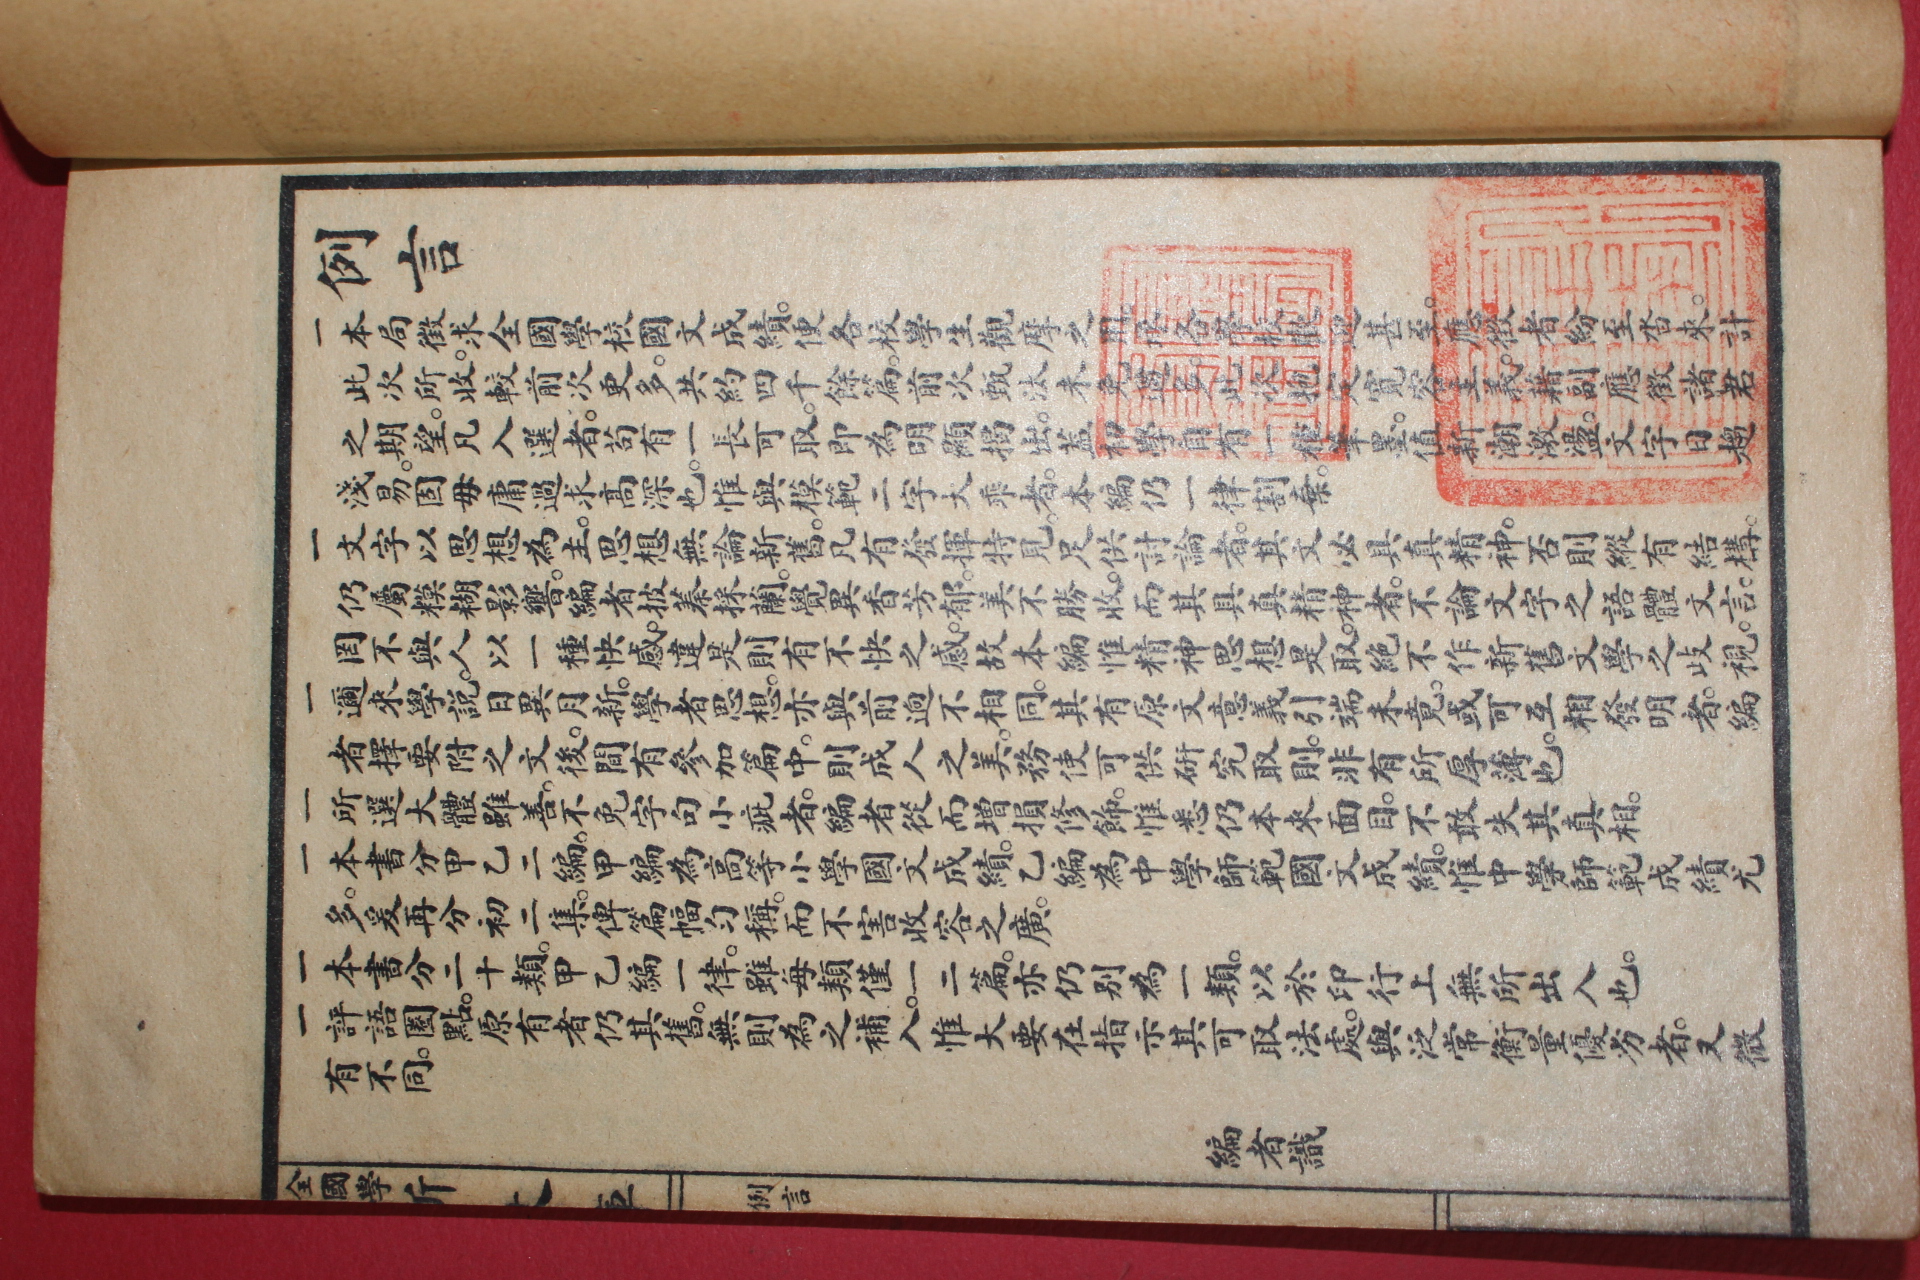 例言
一本局徵求全國學校國文成績。便各校學生觀摩之用。各學校歡迎甚至。應徵者紛至沓來。計
此次所收。較前次更多。共約四千餘篇。前次甄汰未免過多。此次抱定寬容主義。藉副應徵諸君
之期望。凡入選者。苟有一長可取。即為明顯揭出。蓋初學自有一種筆墨。值新潮激盪。文字日趨
淺易。固毋庸過求高深也。惟與模範二字大乖者。本編仍一律割棄。
一文字以思想為主。思想無論新舊。凡有發揮特見。足供討論者。其文必具真精神。否則縱有結構。
仍屬糢糊影響。編者披蓁採蘭。覺異香芳郁。美不勝收。而其具真精神者。不論文字之語體文言。
罔不與人以一種快感。違是則有不快之感。故本編惟精神思想是取。絶不作新舊文學之歧視。
一邇來學說。日異月新。學者思想。亦與前逈不相同。其有原文意義引端未竟。或可互相發明者。編
者擇要附之文後。間有參加篇中。則成人之美。務使可供研究取則。非有所厚薄也。
一所選大體雖善。不免字句小疵者。編者從而增損修飾。惟悉仍本來面目。不敢失其真相。
一本書分甲乙二編。甲編為高等小學國文成績。乙編為中學師範國文成績。惟中學師範成績尤
多。爰再分初二集。俾篇幅勻稱。而不害收容之廣。
一本書分二十類。甲乙編一律。雖每類僅一二篇。亦仍別為一類。以於印行上無所出入也。
一評語圈點。原有者仍其舊。無則為之補入。惟大要在指示其可取法處。與泛常衡量優劣者。又微
有不同。
編者識
全國學
例言